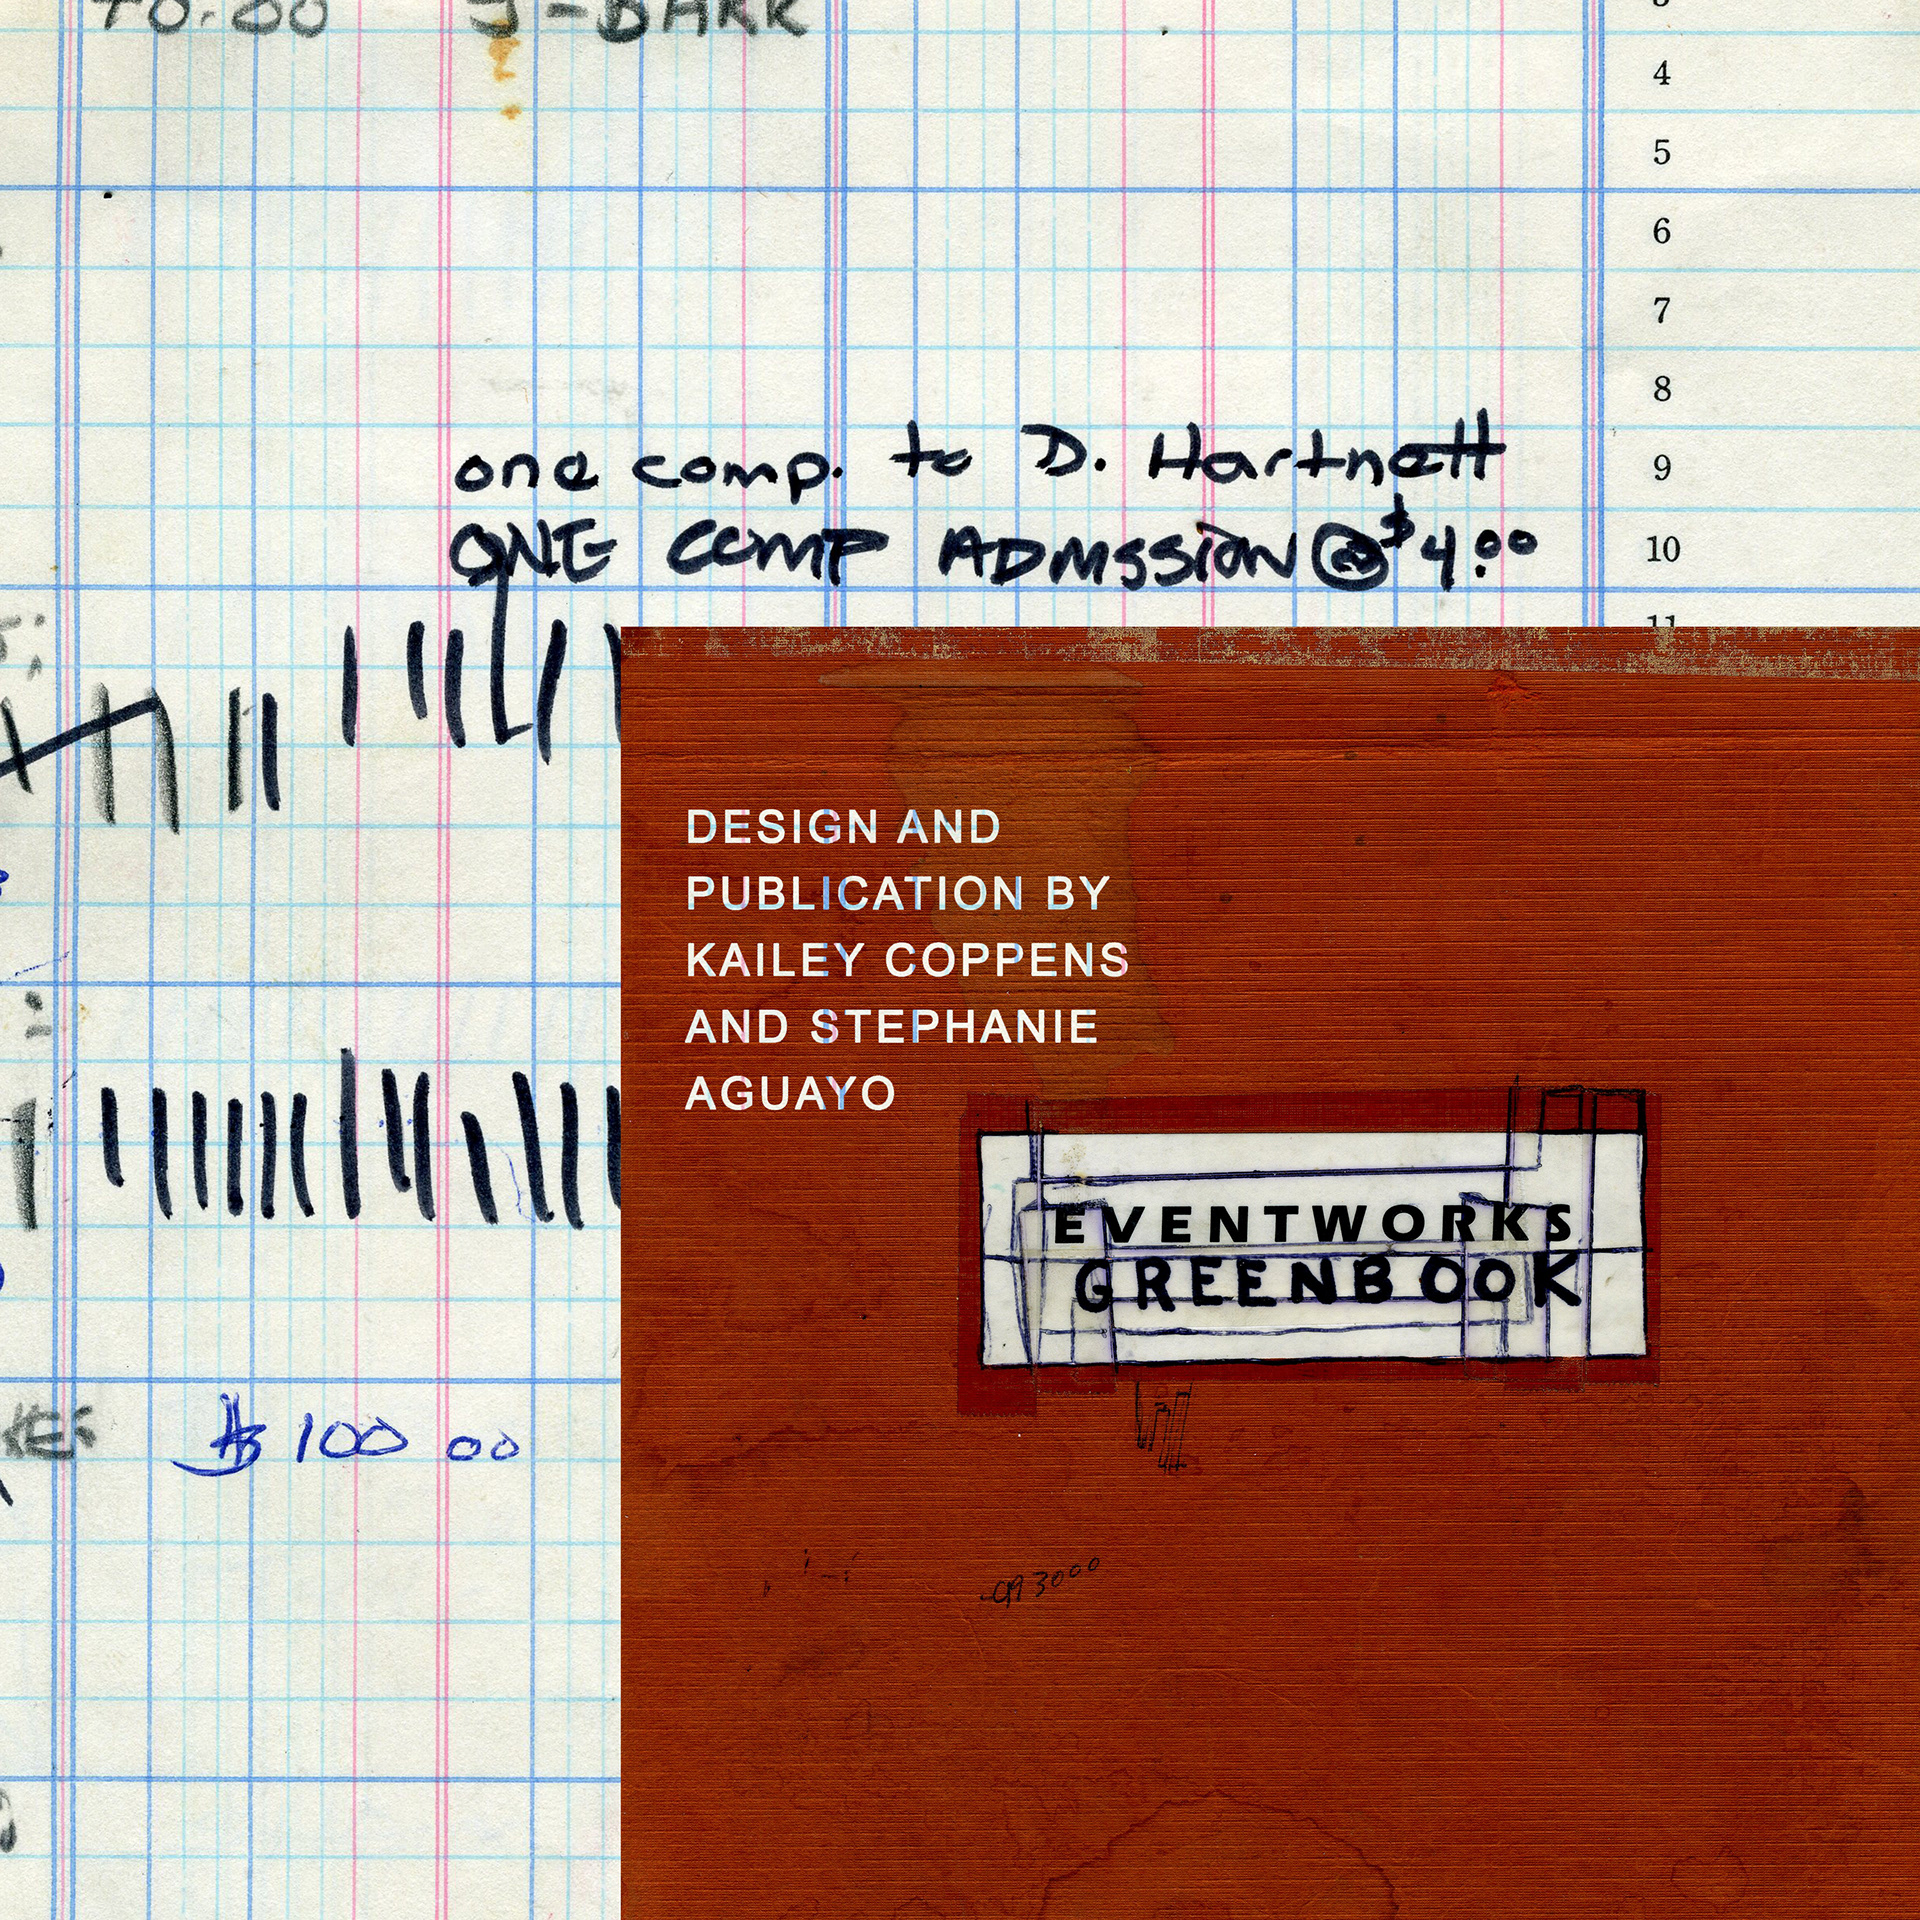 40.00 J-DARK
4
5
6
7
8
one comp. to D. Hartnett
9
ONE COMP ADMSSION @ $4.00
10
11
DESIGN AND
PUBLICATION BY
KAILEY COPPENS
AND STEPHANIE
AGUAYO
EVENTWORKS
GREENBOOK
$100 00